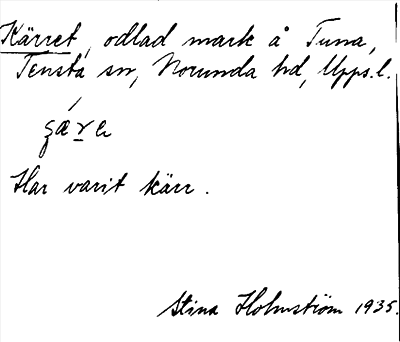 Kärret, odlad mark å Tuna,
Tensta sn, Norunda hd, Upps. l.
Har varit kärr.
Stina Holmström 1935.